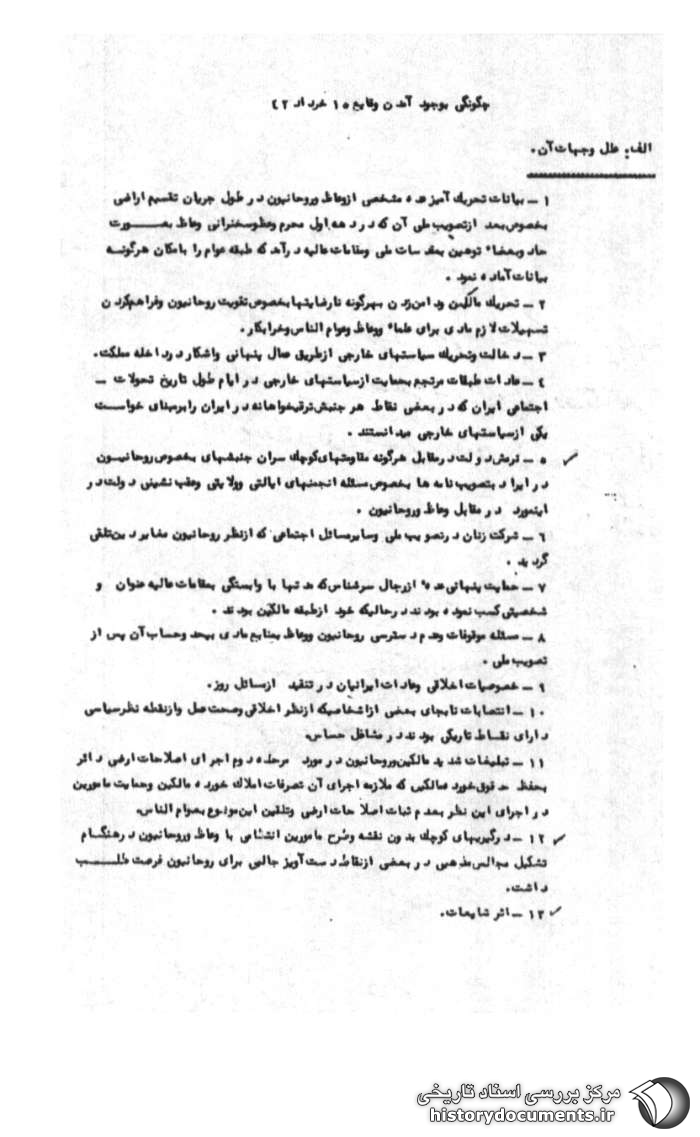 چگونگی بوجود آمدن وقایع ۱۵ خرداد ۴۲
الف: علل وجهات آن.
۱ ـ بیانات تحریك آمیز عده مشخصی ازوعاظ وروحانیون در طول جریان تقسیم اراضی
بخصوص بعد ازتصویب ملی آن که در دهه اول محرم وعظ وسخنرانی وعاظ بصورت
حاد وبعضا" توهین بمقدسات ملی ومقامات عالیه درآمد که طبقه عوام را بامکان هرگونه
بیانات آماده نمود.
۲ ـ تحریك مالکین ودامن زدن بهرگونه نارضایتیها بخصوص تقویت روحانیون وفراهم کردن
تسهیلات لازم مادی برای علماء ووعاظ وعوام الناس وخرابکار.
۳ ـ دخالت وتحریك سیاستهای خارجی ازطریق عمال پنهانی واشکار درداخله مملکت.
۴ ـ عادات طبقات مرتجع بحمایت ازسیاستهای خارجی در ایام طول تاریخ تحولات ـ
اجتماعی ایران که در بعضی نقاط هر جنبش ترقیخواهانه در ایران را برمبنای خواست
یکی ازسیاستهای خارجی میدانستند.
۵ ـ نرمش دولت درمقابل هرگونه مقاومتهای کوچك سران جنبشهای بخصوص روحانیون
در ایراد بتصویب نامه ها بخصوص مسئله انجمنهای ایالتی وولایتی وعقب نشینی دولت در
اینمورد در مقابل وعاظ وروحانیون.
۶ ـ شرکت زنان درتصویب ملی وسایرمسائل اجتماعی که ازنظر روحانیون مغایر دین تلقی
گردید.
۷ ـ حمایت پنهانی عده ازرجال سرشناس که مدتها با وابستگی بمقامات عالیه عنوان و
شخصیتی کسب نموده بودند درحالیکه خود ازطبقه مالکین بودند.
۸ ـ مسئله موقوفات وعدم دسترسی روحانیون ووعاظ بمنابع مادی بیحد وحساب آن پس از
تصویب ملی.
۹ ـ خصوصیات اخلاقی وعادات ایرانیان در تنقید ازمسائل روز.
۱۰ ـ انتصابات نابجای بعضی ازاشخاصیکه ازنظر اخلاقی وصحت عمل وازنقطه نظرسیاسی
دارای نقاط تاریکی بودند در مشاغل حساس.
۱۱ ـ تبلیغات شدید مالکین وروحانیون در مورد مرحله دوم اجرای اصلاحات ارضی در اثر
بحفظ حقوق خورده مالکین که ملازمه اجرای آن تصرفات املاك خورده مالکین وحمایت مامورین
در اجرای این نظر بعدم ثبات اصلاحات ارضی وتلقین این موضوع بعوام الناس.
۱۲ ـ درگیریهای کوچك بدون نقشه وطرح مامورین انتظامی با وعاظ وروحانیون در هنگام
تشکیل مجالس مذهبی در بعضی ازنقاط دست آویز جالبی برای روحانیون فرصت طلب
داشت.
۱۳ ـ اثر شایعات.
مرکز بررسی اسناد تاریخی
historydocuments.ir